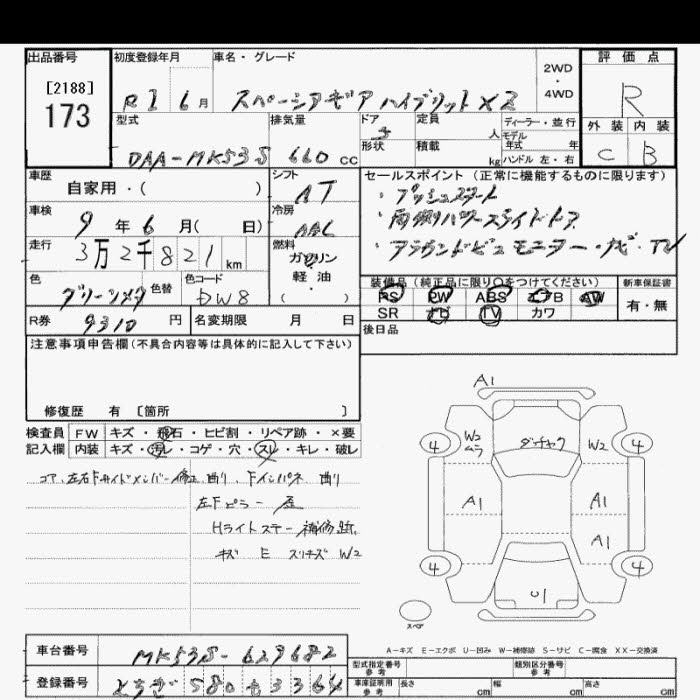 出品番号 初度登録年月 車名・グレード 2WD・4WD 評価点
[2188]
173
R1 6月 スペーシアギア ハイブリットXZ
R
型式 排気量 ドア 定員 人 ディーラー・並行
モデル年式 年
外装 内装
DAA-MK53S 660 cc 5 形状 積載 kg ハンドル 左・右 C B
車歴 自家用・( ) シフト AT
セールスポイント (正常に機能するものに限ります)
・プッシュスタート
・両側パワースライドドア
・アラウンドビューモニター・ナビ・TV
車検 9年 6月( 日) 冷房 AAC
走行 3万2千821km 燃料 ガソリン 軽油・
色 グリーンメタ 色替 色コード DW8
装備品 (純正品に限り○をつけてください) 新車保証書
PS PW ABS エアB AW 有・無
SR ナビ TV カワ
R券 9310円 名変期限 月 日 後日品
注意事項申告欄 (不具合内容等は具体的に記入して下さい)
修復歴 有 [箇所 ]
検査員 FW キズ・飛石・ヒビ割・リペア跡・×要
記入欄 内装 キズ・汚レ・コゲ・穴・スレ・キレ・破レ
コア、左右Fサイドメンバー修正 曲り、Fインパネ 曲り
左Fピラー
Hライトステー 補修跡、
キズ E スリキズ W2
A1
4 W2 ムラ W2 4
A1 A1
A1
4 U1 4
スペア
A-キズ E-エクボ U-凹み W-補修跡 S-サビ C-腐食 XX-交換済
車台番号 MK53S-629682
登録番号 とちぎ 580 も 3364
型式指定番号 参考 類別区分番号 参考
車庫証明用 参考 長さ cm 幅 cm 高さ cm